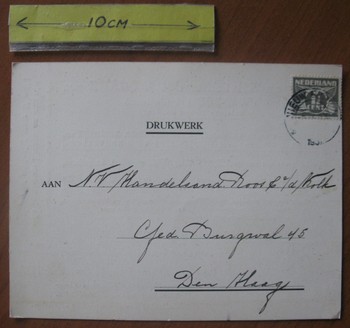 10CM
NEDERLAND
DRUKWERK
AAN N.V. Handelsond Roos & v/d Kolk
Ged. Burgwal 45
Den Haag